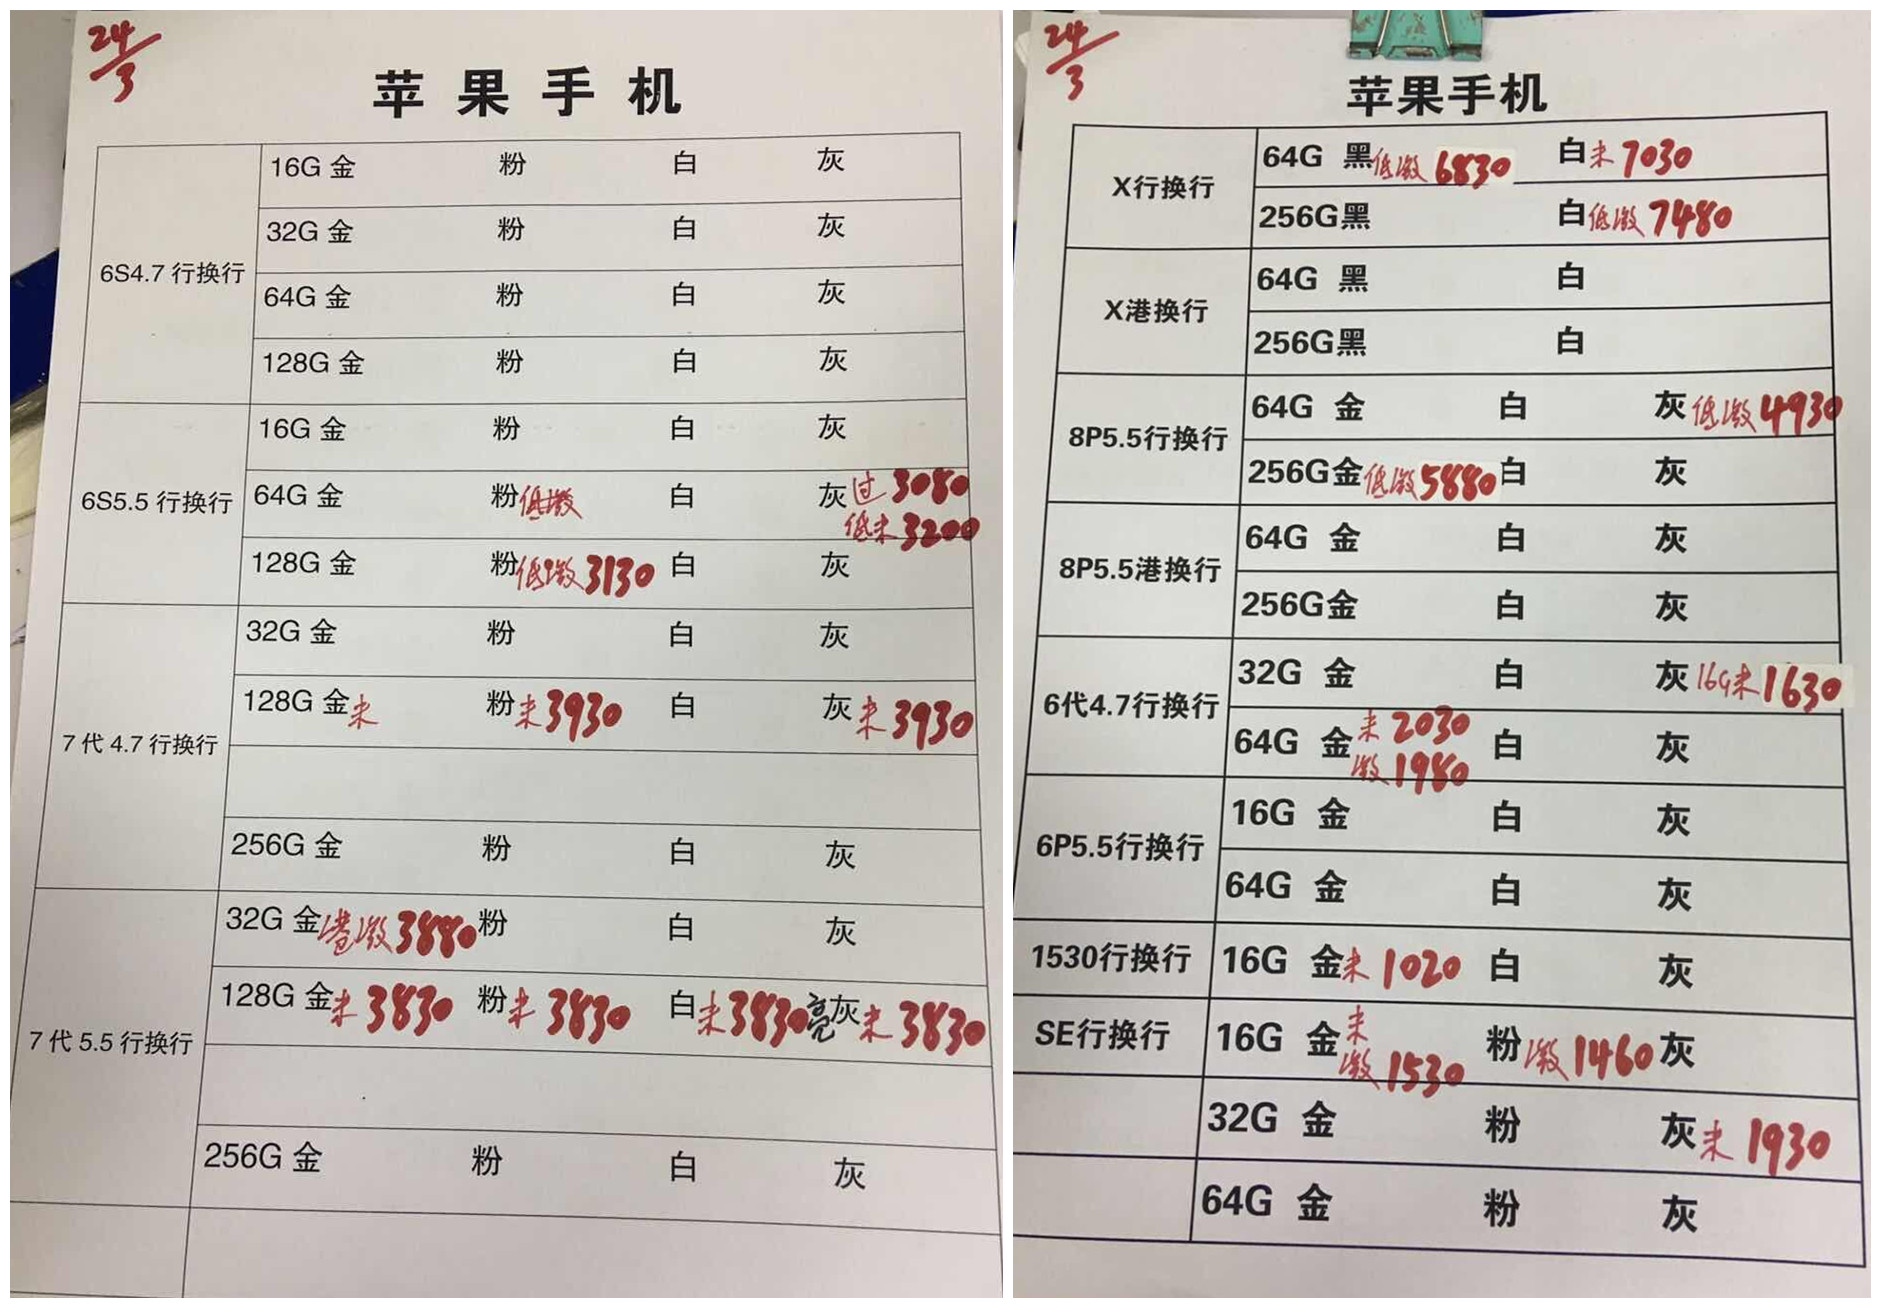 24/3
苹果手机
6S4.7 行换行
16G 金 粉 白 灰
32G 金 粉 白 灰
64G 金 粉 白 灰
128G 金 粉 白 灰
6S5.5 行换行
16G 金 粉 白 灰
64G 金 粉低激 白 灰过3080
低未3200
128G 金 粉低激3130 白 灰
7代 4.7 行换行
32G 金 粉 白 灰
128G 金未 粉未3930 白 灰未3930
256G 金 粉 白 灰
7代 5.5 行换行
32G 金港激3880 粉 白 灰
128G 金未3830 粉未3830 白未3830 亮灰未3830
256G 金 粉 白 灰
24/3
苹果手机
X行换行
64G 黑低激6830 白未7030
256G黑 白低激7480
X港换行
64G 黑 白
256G黑 白
8P5.5行换行
64G 金 白 灰低激4930
256G金低激5880 白 灰
8P5.5港换行
64G 金 白 灰
256G金 白 灰
6代4.7行换行
32G 金 白 灰16G未1630
64G 金未2030 白 灰
激1980
6P5.5行换行
16G 金 白 灰
64G 金 白 灰
1530行换行
16G 金未1020 白 灰
SE行换行
16G 金未 粉激1460 灰
激1530
32G 金 粉 灰未1930
64G 金 粉 灰